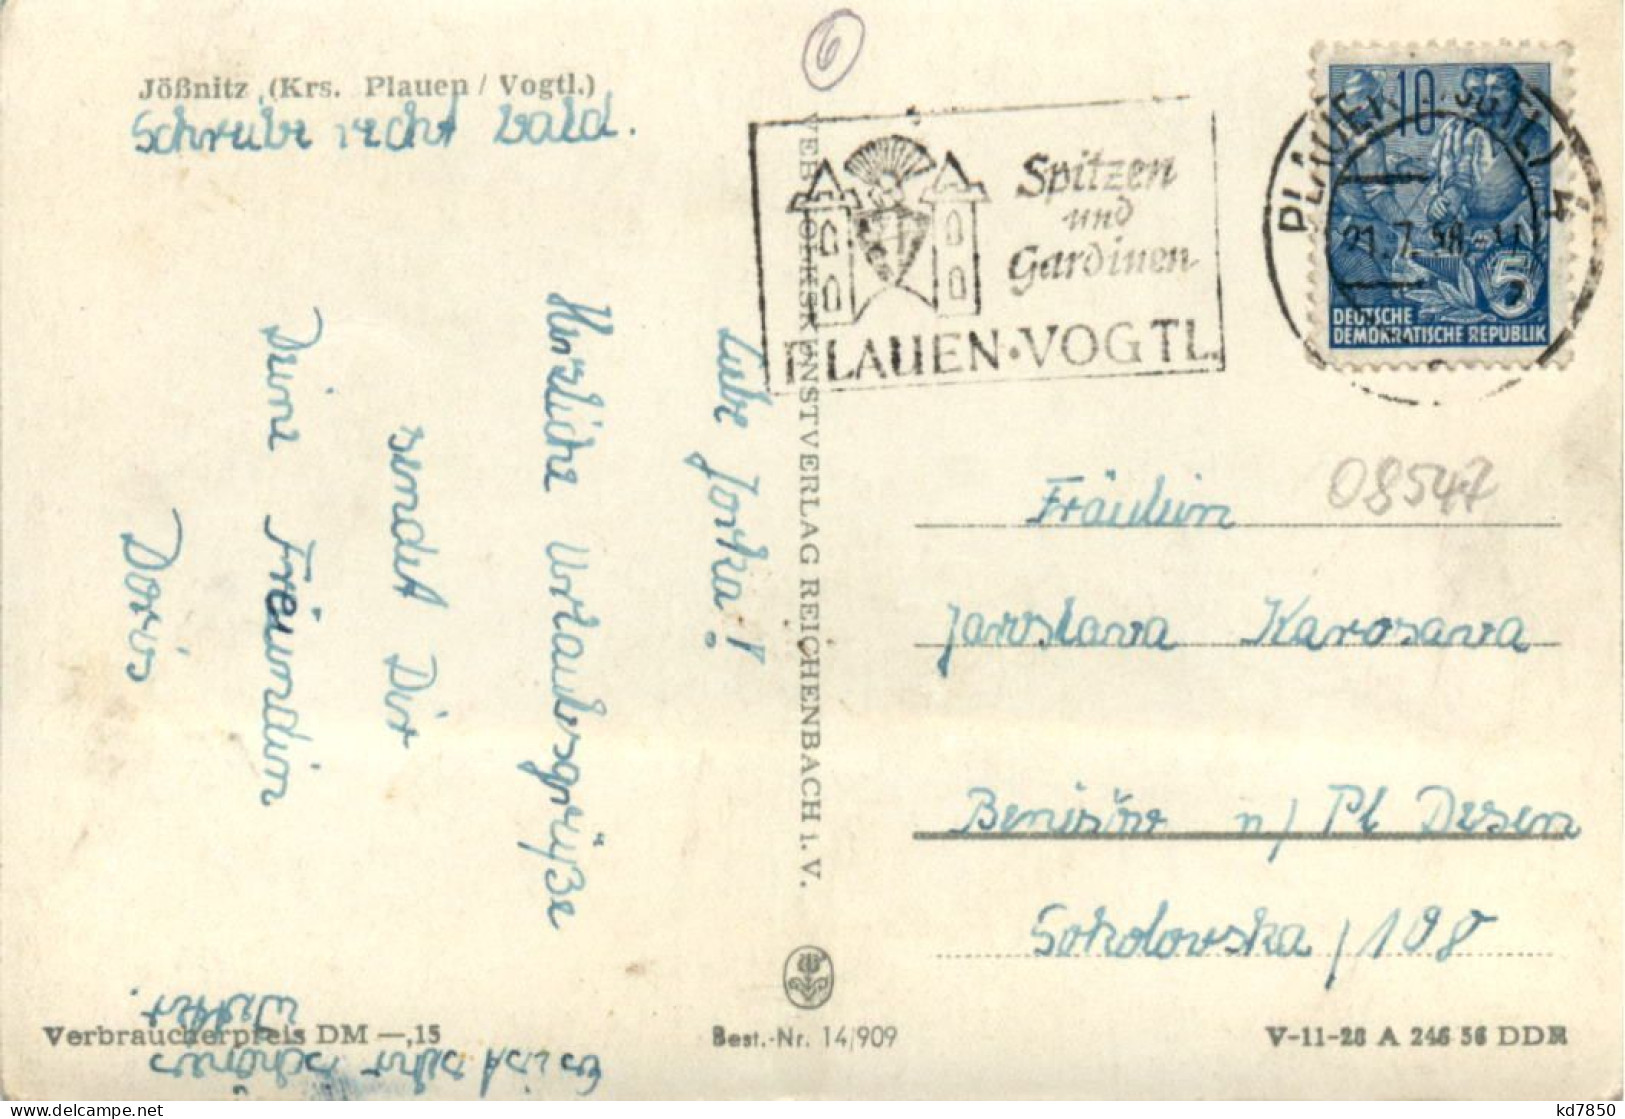 Jößnitz (Krs. Plauen / Vogtl.)
Schreibe recht bald.
Liebe Jorka!
Herzliche Urlaubsgrüße
sendet Dir
Deine Freundin
Doris
Es ist sehr schönes
Wetter.
VEB VOLKSKUNSTVERLAG REICHENBACH i. V.
6
Spitzen
und
Gardinen
PLAUEN · VOGTL.
PLAUEN (VOGTL) 4
21.7.58
10
5
DEUTSCHE
DEMOKRATISCHE REPUBLIK
08547
Fräulein
Jaroslava Karosava
Benišov n/ Pl Dzsen
Sokolovska / 198
Verbraucherpreis DM —,15
Best.-Nr. 14/909
V-11-28 A 246 56 DDR
kd7850